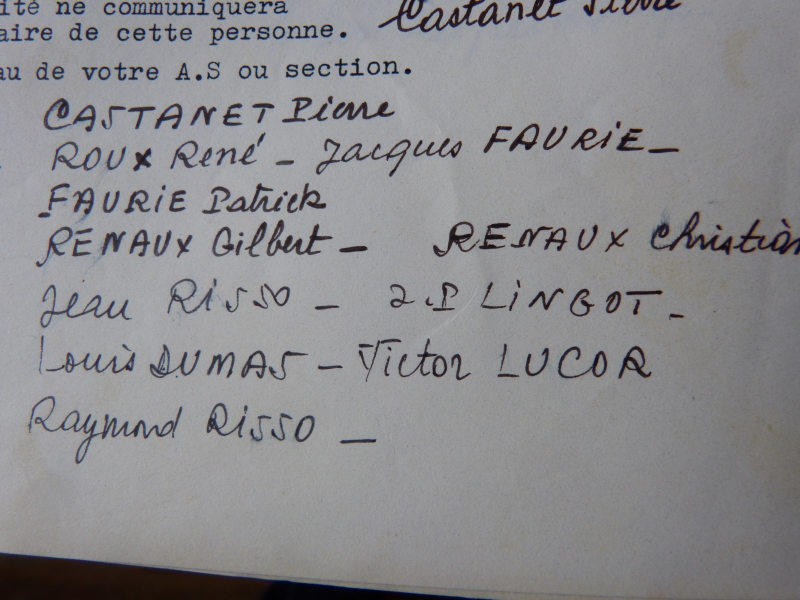 ité ne communiquera
aire de cette personne. Castanet Pierre
au de votre A.S ou section.
CASTANET Pierre
ROUX René - Jacques FAURIE -
FAURIE Patrick
RENAUX Gilbert - RENAUX Christian
Jean RISSO - J.P LINGOT -
Louis DUMAS - Victor LUCOR
Raymond RISSO -